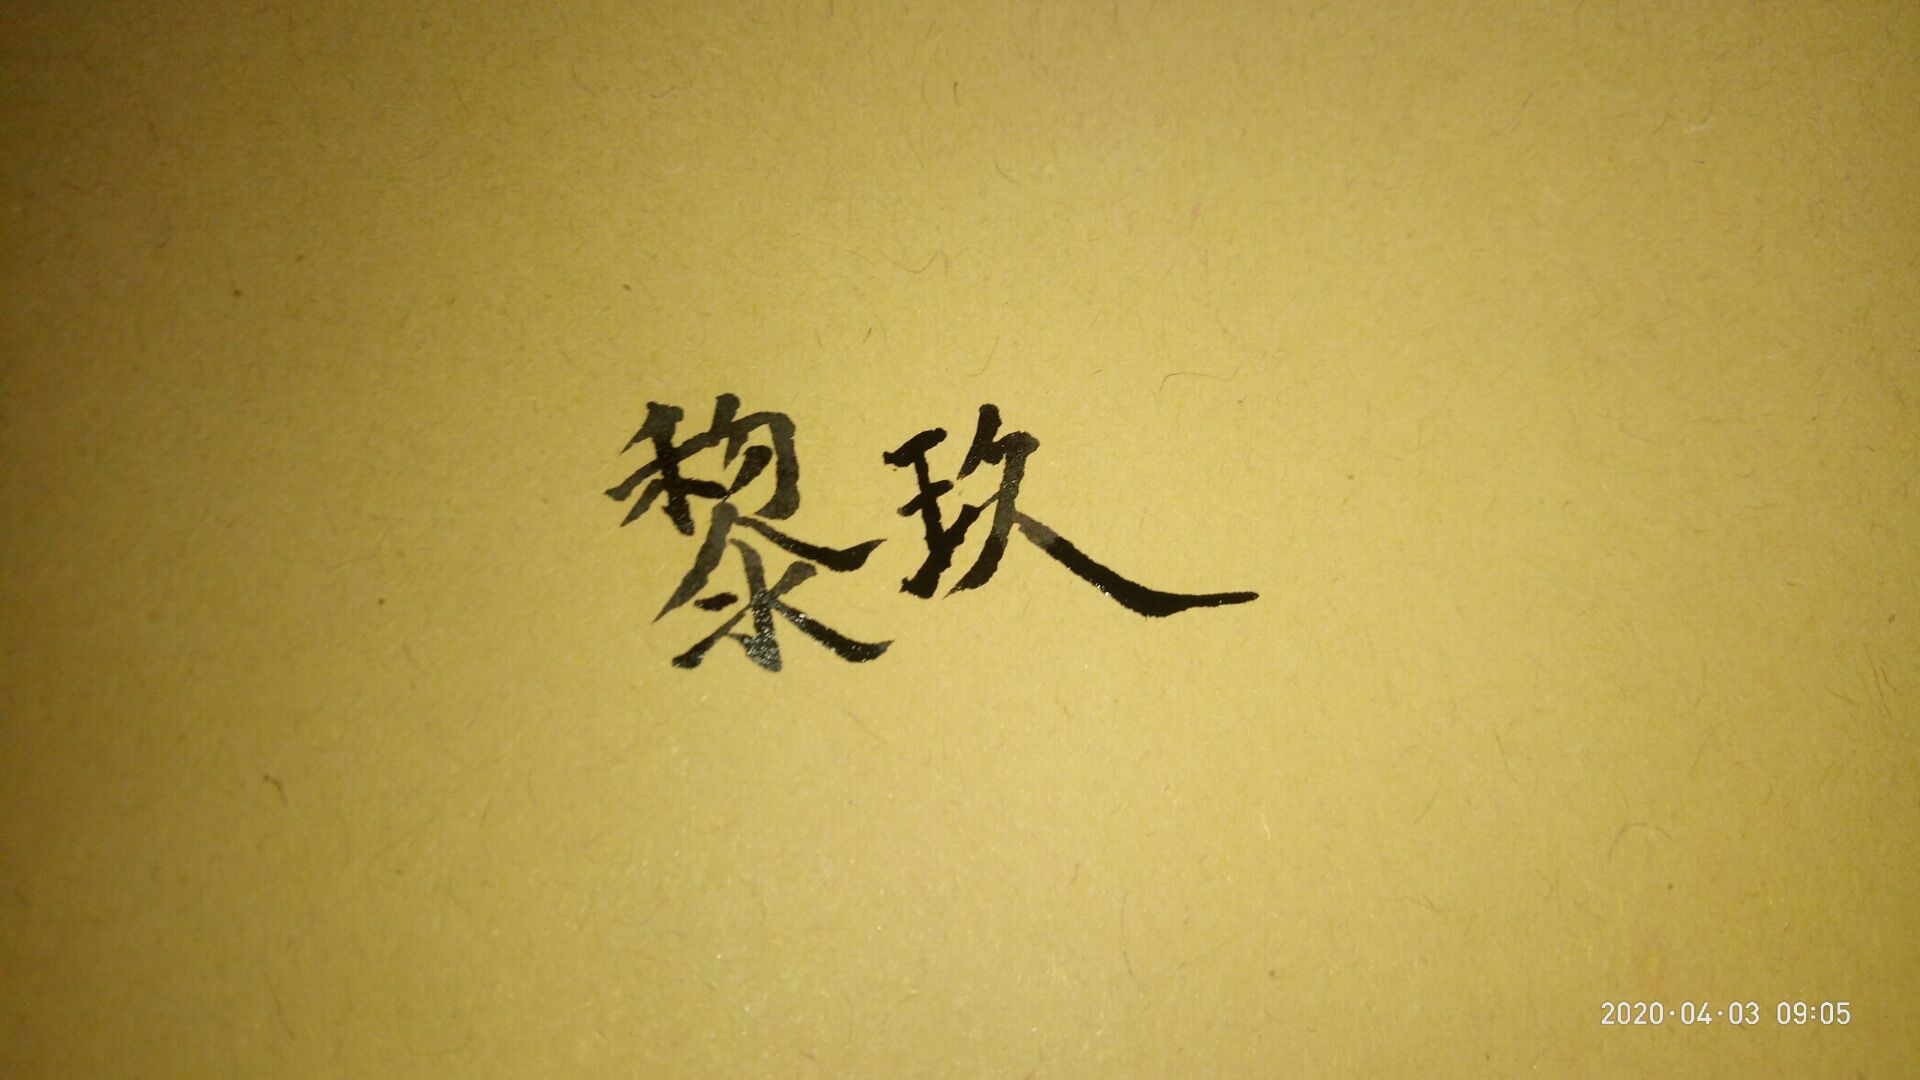 黎玖
2020·04·03 09:05